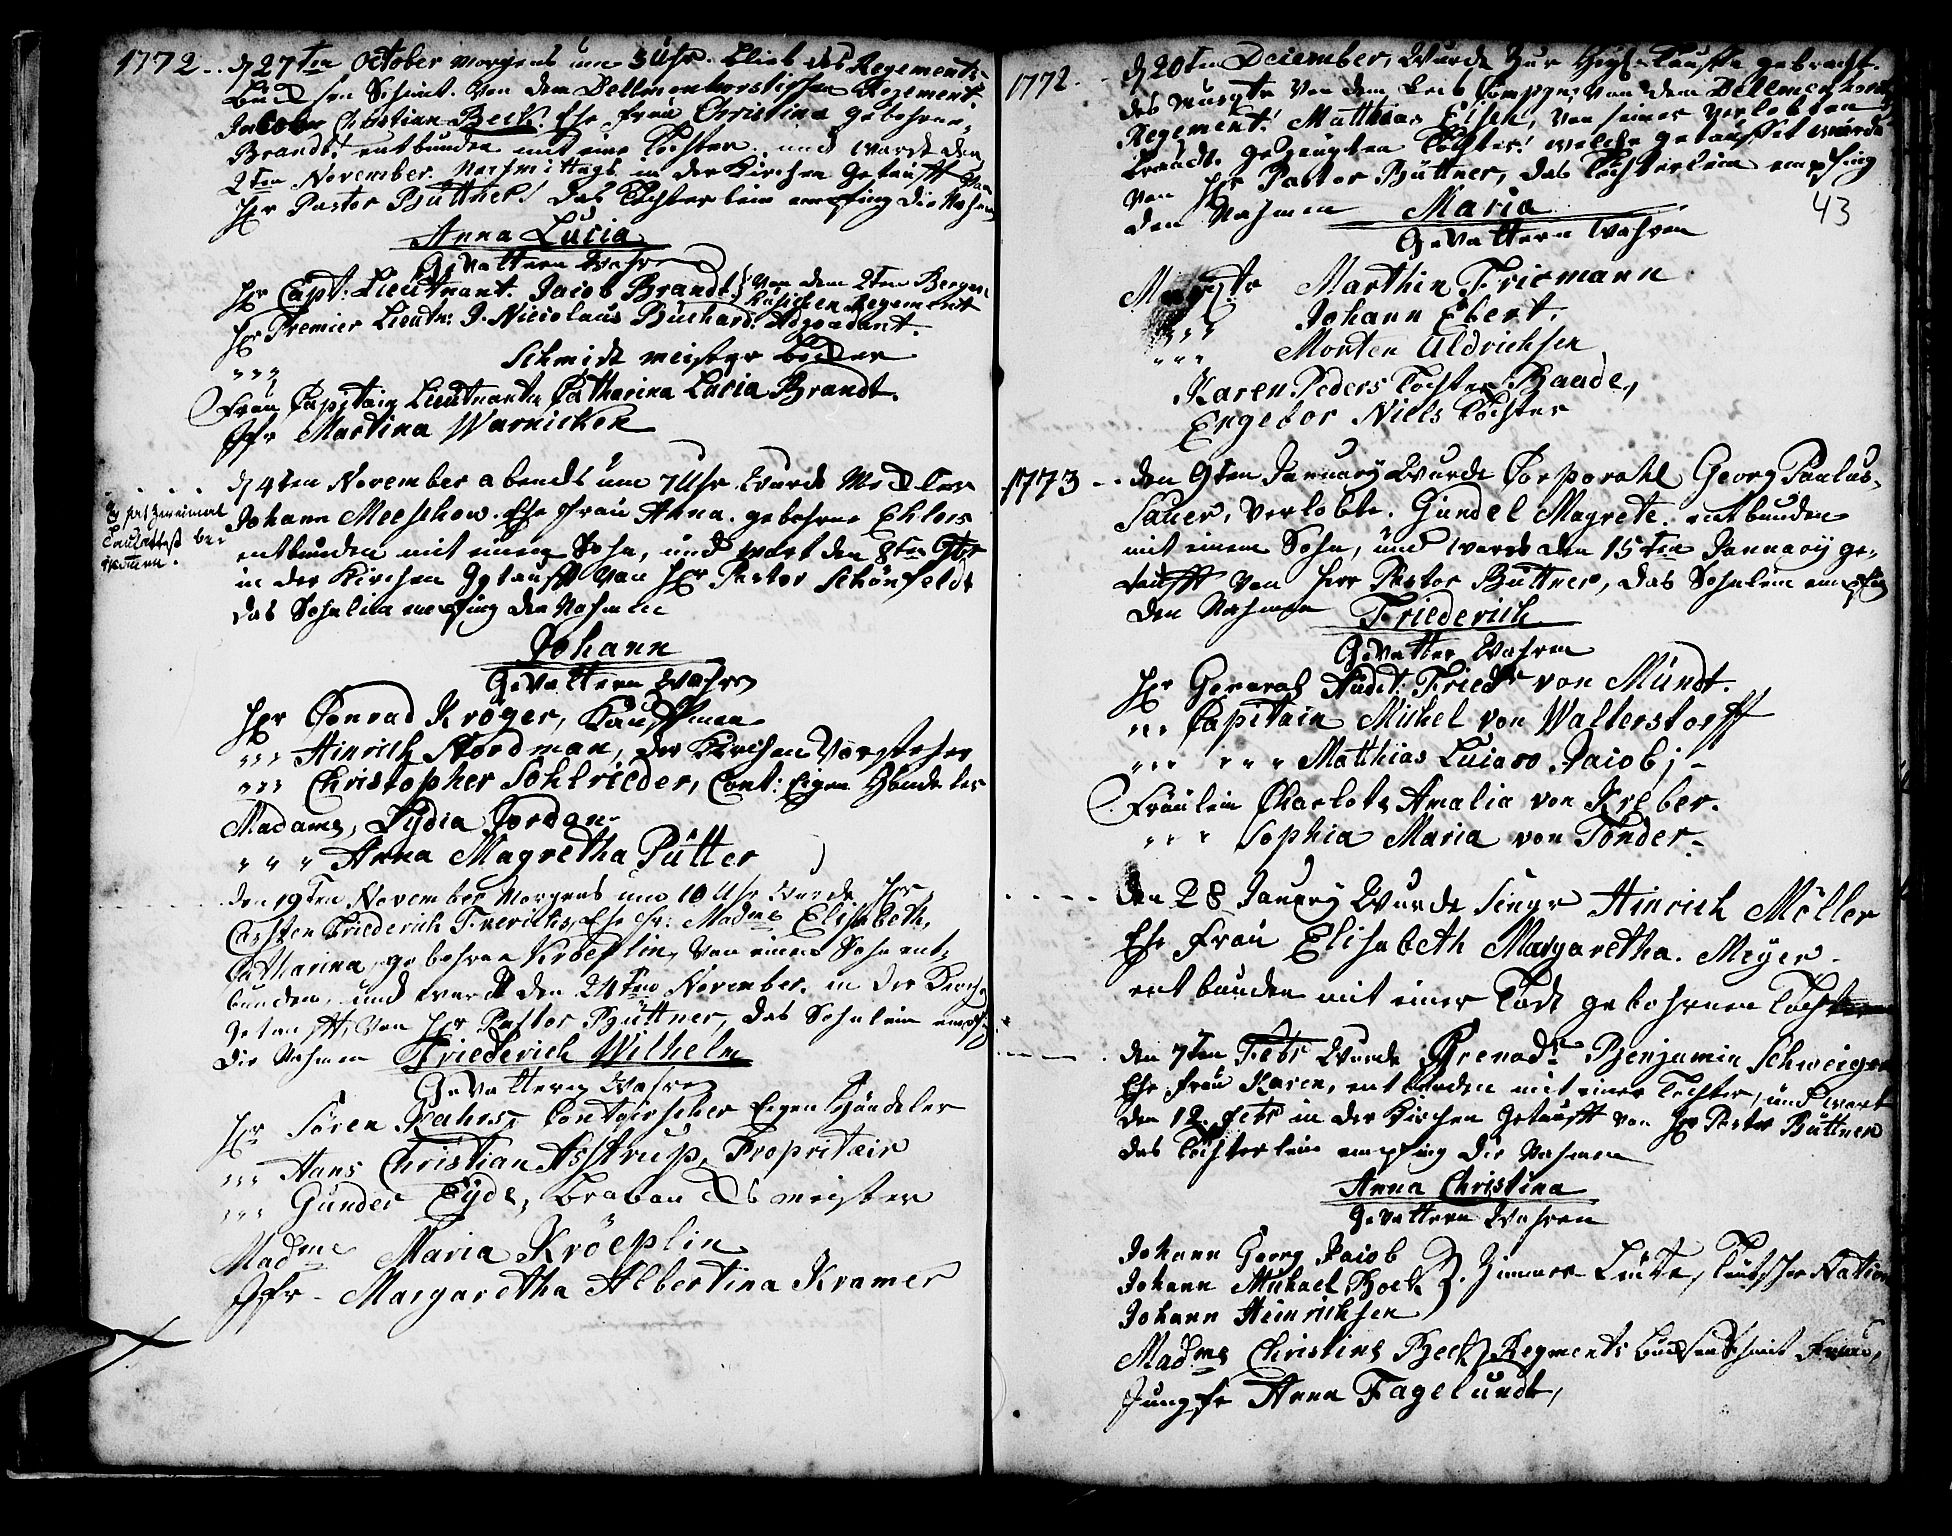 1772. d 27ten October morgens um 3 Uhr. Blieb des Regements-
Büchsen Schmit. Von dem Dellmenhorstischen Regement.
Jacober Christian Beck. Ehe frau Christina gebohrne,
Brandt! entbunden mit eine Tochter. und ward den
2ten November. Nachmittags in der Kirchen getaufft von
Hr Pastor Büttner! das Töchterlein empfing die Nahmen
Anna Lucia
Gevattern Wahren
Hr Capt: Lieutnant. Jacob Brandt} von dem 2ten Bergen
husischen Regement
Hr Premier Lieutn: J. Niccolaus Buchard. Adgoudant.
" " " Schmidt meister
Frau Capitain Lieutnantn Catharina Lucia Brandt.
Jfr Martina Warnicken
d 4ten November abends um 7 Uhr wurde
Johann Meeschow. Ehe frau Anna. gebohrne Ehlers
entbunden mit einen Sohn, und wart den 8ten 9br
in der Kirchen Getaufft von Hr Pastor Schönfeldt
das Sohnlein empfing den Nahmen
Johann
Gevattern Wahren
Hr Conrad Kröger, Kauffman
" " " Hinrich Nordman, der Kirchen Vorsteher
" " " Christopher Sohlrieder, Cont: Eigen Händeler
Madame, Lydia Jordan
" " " Anna Magretha Pütter
den 19ten November Morgens um 10 Uhr wurde Hr
Carsten Friederich Frerichs, Ehe fr: Madme Elisabeth,
Catharina, gebohrne Kröeplin, von einen Sohn ent-
bunden, und ward den 24ten November. in der Kirch
getaufft, von Hr Pastor Büttner, das Sohnlein empf:
die Nahmen Friederich Wilhelm
Gevattern Wahren
Hr Sören Kahrs, Contoirscher Eigen Händeler
" " " Hans Christian Asstrup, Propritair
" " " Gunder Eyde, meister
Madme Maria Kröeplin
Jfr. Margaretha Albertina Kramer
1772. d 20ten December, Wurde Zur Heyl. Tauffe gebracht.
des von dem Leib Compgn: von dem Dellmenhorst:
Regement! Matthias Eisen, von seiner Verlobten
gezeugten Tochter! welche getauffet wurde
von Hr Pastor Büttner, das Töchterlein empfing
den Nahmen Maria
43
Gevattern Wahren
Marthin Friemann
" " " Johann Ebert,
" " " Morten Uldrichsen
Karen Peders Tochter Baade,
Engebor Niels Tochter
1773 - den 9ten January Wurde Corporahl Georg Paulus-
Sauer, Verlobte. Gundel Magrete. entbunden
mit einem Sohn, und ward den 15ten Jannary ge-
taufft von Herr Pastor Büttner, das Sohnlein empfing
den Nahmen Friederich
Gevatter Wahren
Hr General Audit: Friedr von Mündt.
" " " Capitain Michel von Walterstorff
" " " " " " Matthias Luiaso Jacobj -
Fräulein Charlote Amalia von Kreber.
" " " Sophia Maria von Tönder.
den 28 Janury Wurde Hinrich Möller
Ehe Frau Elisabeth Margaretha. Meyer.
entbunden mit einer Todt gebohrnen Tochter
den 7ten Febr Wurde Grenadr Benjamin Schweiger
Ehe frau Karen, entbunden mit einer Tochter, und wart
den 12. Febr in der Kirchen getaufft von Hr Pastor Büttner
das Töchterlein empfing die Nahmen
Anna Christina
Gevattern Wahren
Johann Georg Jacob
Johann Michael Bock }. Zimmer Leute, Teutscher Nation
Johann Heinrichsen
Madme Christine Beck, Regments Büchsenschmit Frau,
Jungfr Anna Fagelundt,